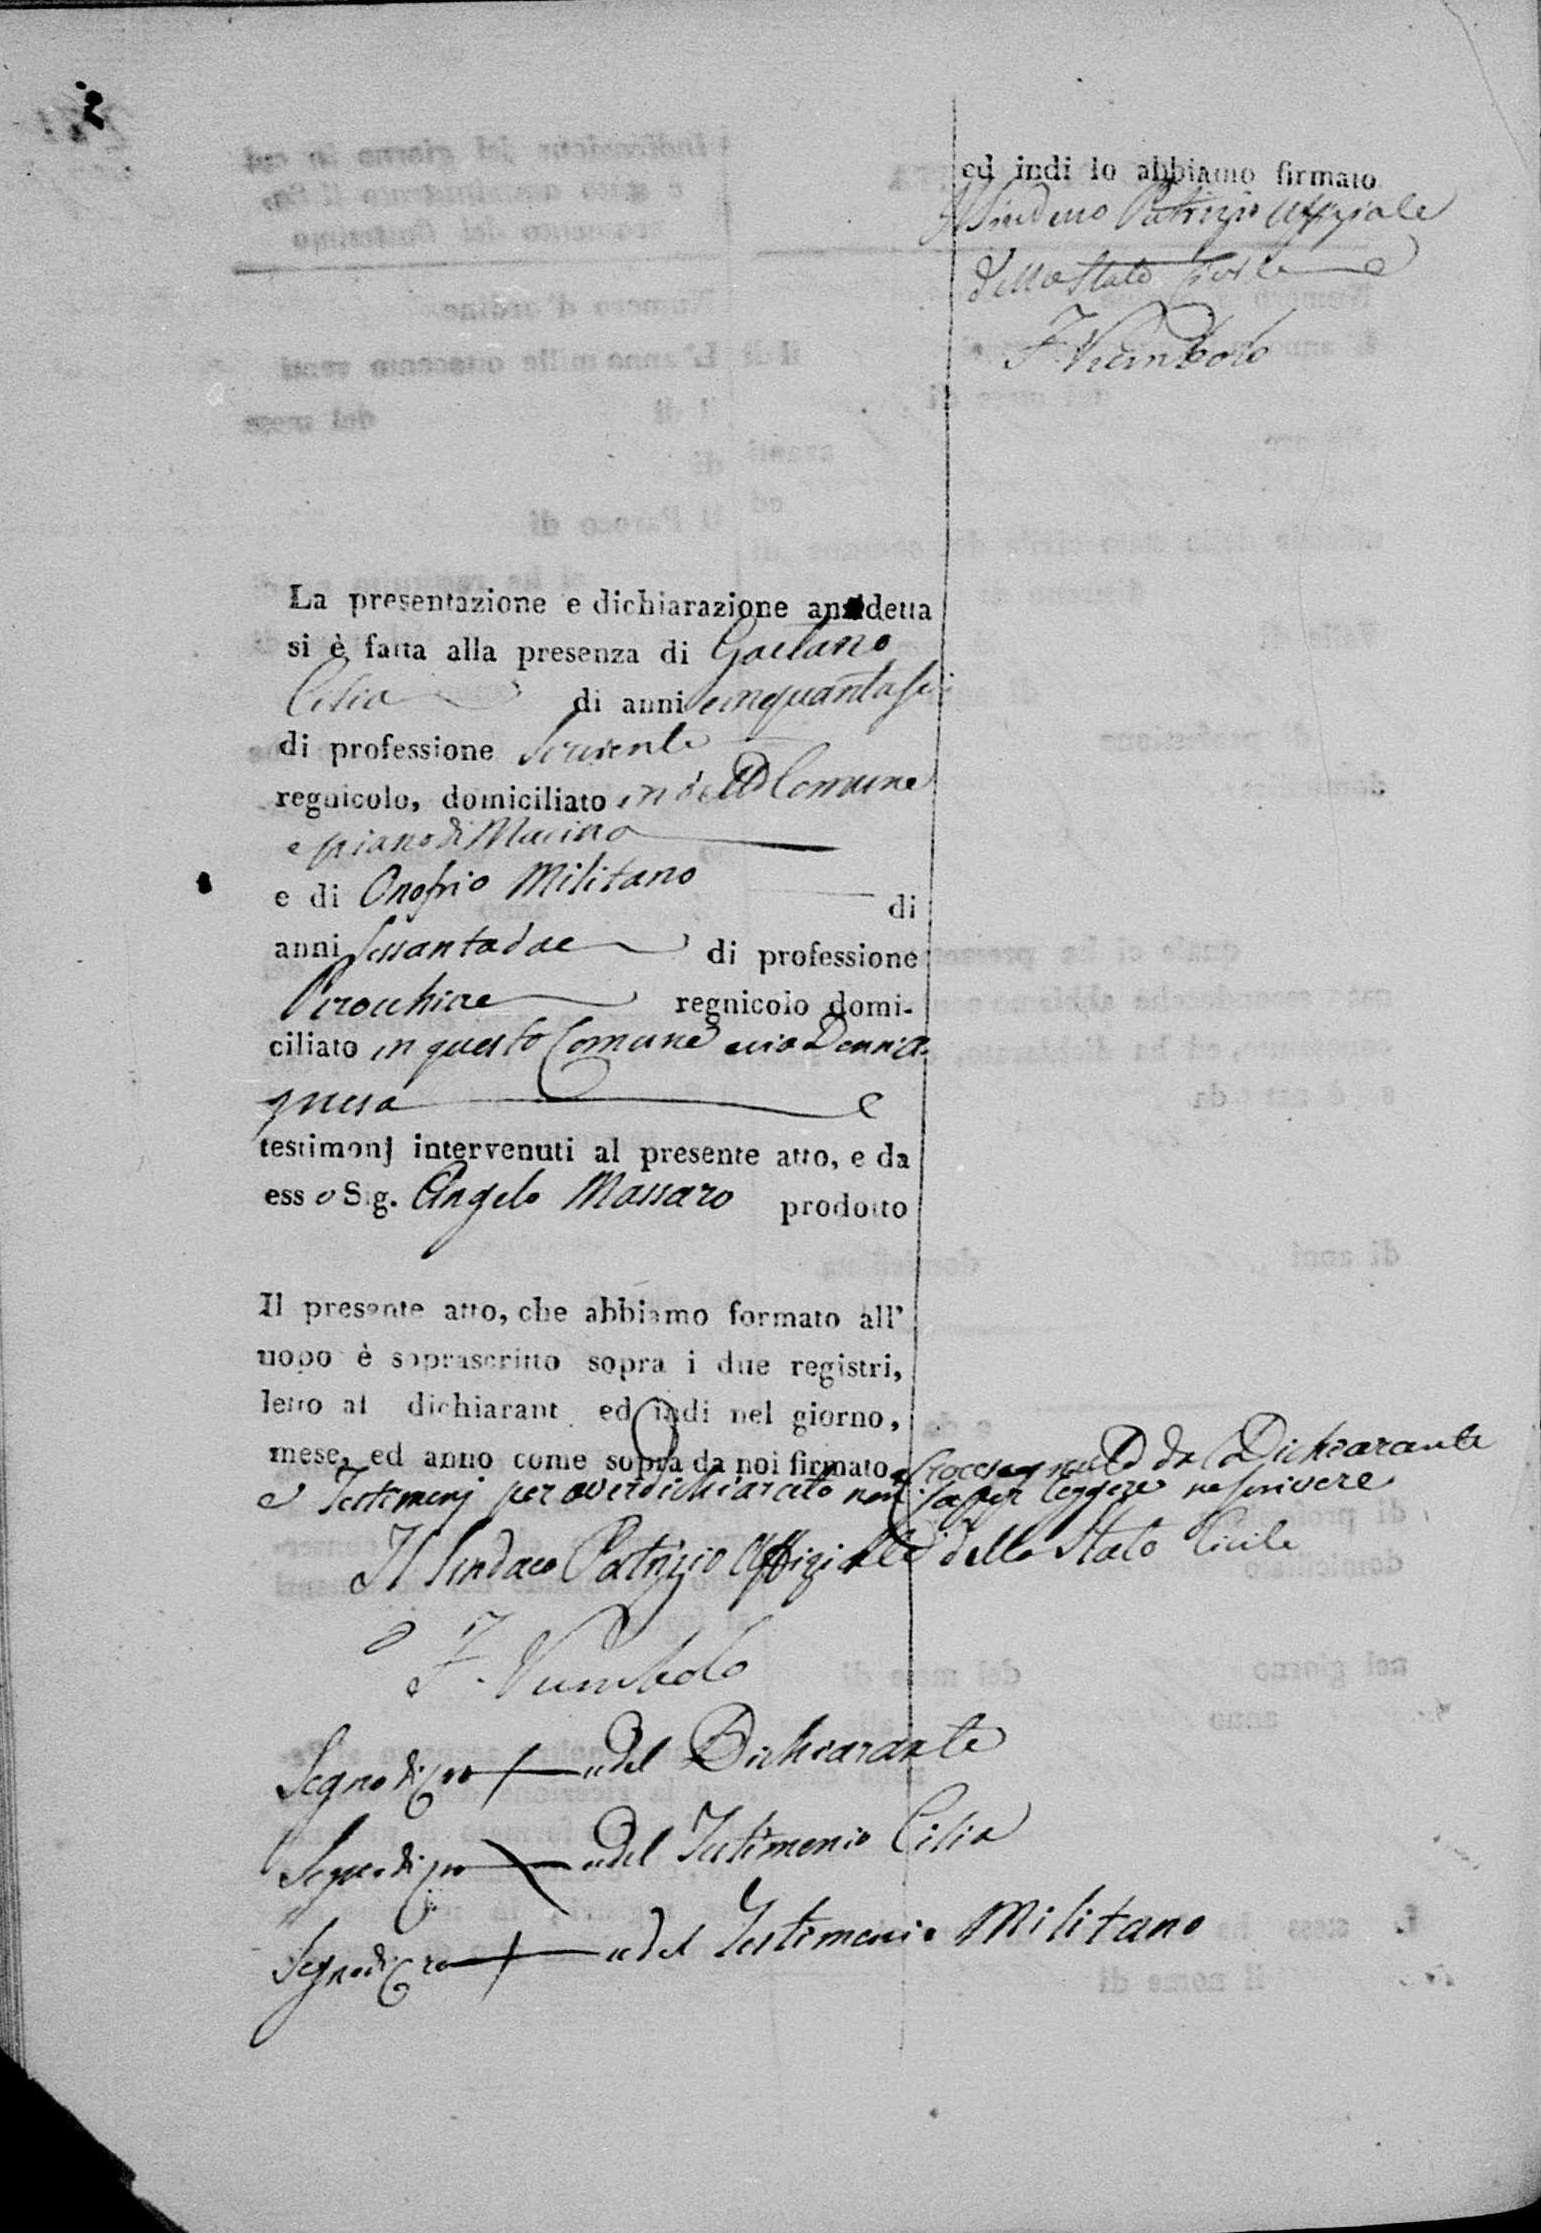 2
La presentazione e dichiarazione anzidetta
si è fatta alla presenza di Gaetano
Cilia di anni cinquantasei
di professione Servente
regnicolo, domiciliato in detto Comune
e piano di Macina
e di Onofrio Militano di
anni sessantadue di professione
regnicolo domi-
ciliato in questo Comune via Donnia
testimonj intervenuti al presente atto, e da
esso Sig. Angelo Massaro prodotto
Il presente atto, che abbiamo formato all'
uopo è soprascritto sopra i due registri,
letto al dichiarant ed indi nel giorno,
mese, ed anno come sopra da noi firmato, e Crocesegnato da Dichiarante
e Testimonj per aver dichiarato non saper leggere ne scrivere
Il Sindaco Patrizio Uffiziale dello Stato Civile
Segno di Croce del Dichiarante
Segno di Croce del Testimonio Cilia
Segno di Croce del Testimonio Militano
ed indi lo abbiamo firmato
Il Sindaco Patrizio Uffiziale
dello Stato Civile